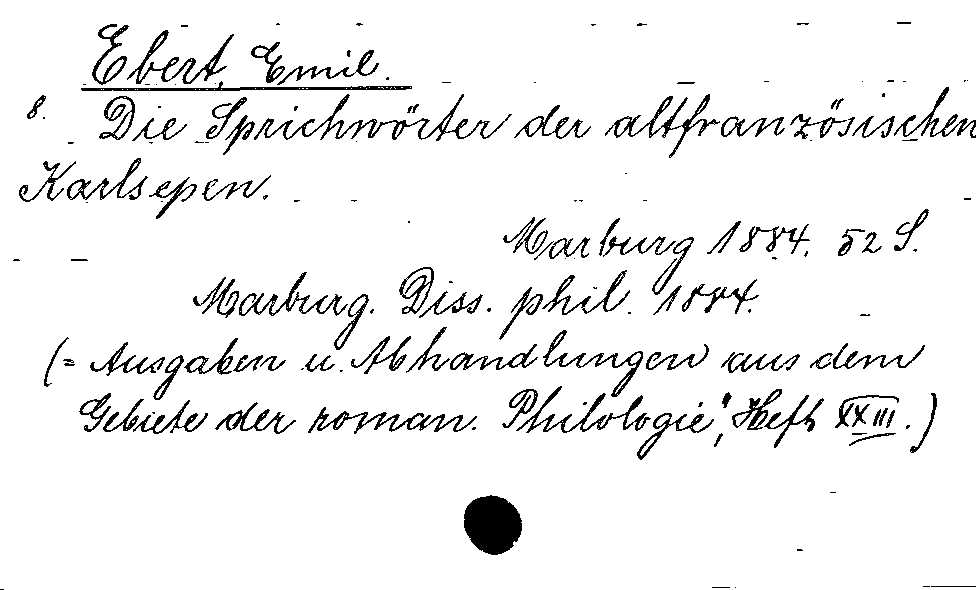 Ebert, Emil.
8. Die Sprichwörter der altfranzösischen
Karlsepen.
Marburg 1884. 52 S.
Marburg. Diss. phil. 1884.
(= Ausgaben u. Abhandlungen aus dem
Gebiete der roman. Philologie", Heft XXIII.)